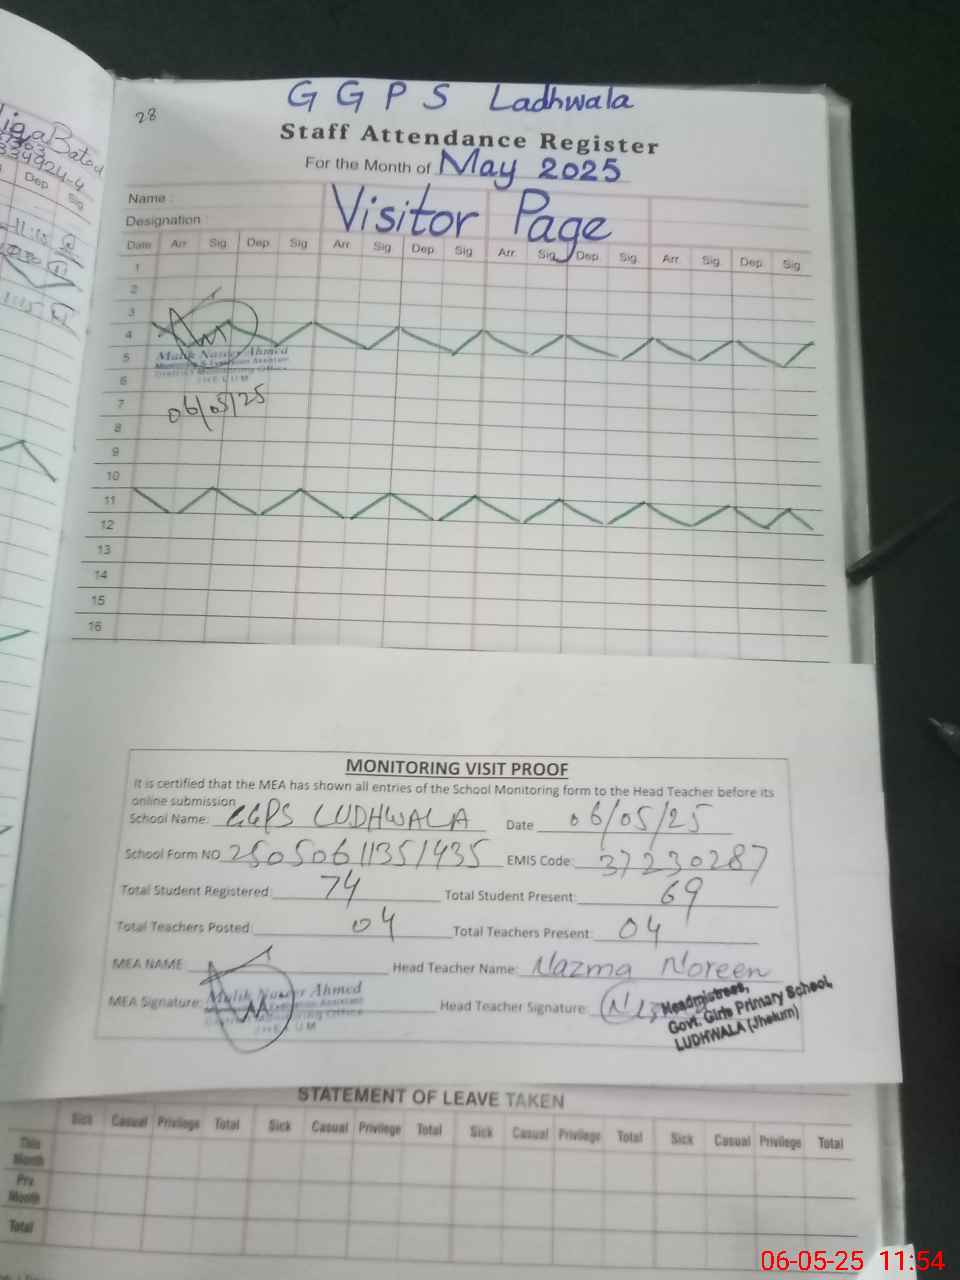 28
G G P S Ladhwala
Staff Attendance Register
For the Month of May 2025
Name :
Designation :
Visitor Page
Date Arr. Sig. Dep. Sig. Arr. Sig. Dep. Sig. Arr. Sig. Dep. Sig. Arr. Sig. Dep. Sig.
1
2
3
4
5
6
7
8
9
10
11
12
13
14
15
16
Malik Naseer Ahmed
Monitoring & Evaluation Assistant
District Monitoring Office
JHELUM
06/05/25
MONITORING VISIT PROOF
It is certified that the MEA has shown all entries of the School Monitoring form to the Head Teacher before its
online submission
School Name: GGPS LUDHWALA Date 06/05/25
School Form NO 25050611351435 EMIS Code: 37230287
Total Student Registered: 74 Total Student Present: 69
Total Teachers Posted: 04 Total Teachers Present: 04
MEA NAME Head Teacher Name: Nazma Noreen
MEA Signature: Head Teacher Signature:
Malik Naseer Ahmed
Monitoring & Evaluation Assistant
District Monitoring Office
JHELUM
Headmistress,
Govt. Girls Primary School,
LUDHWALA (Jhelum)
STATEMENT OF LEAVE TAKEN
Sick Casual Privilege Total Sick Casual Privilege Total Sick Casual Privilege Total Sick Casual Privilege Total
This Month
Prv. Month
Total
06-05-25 11:54